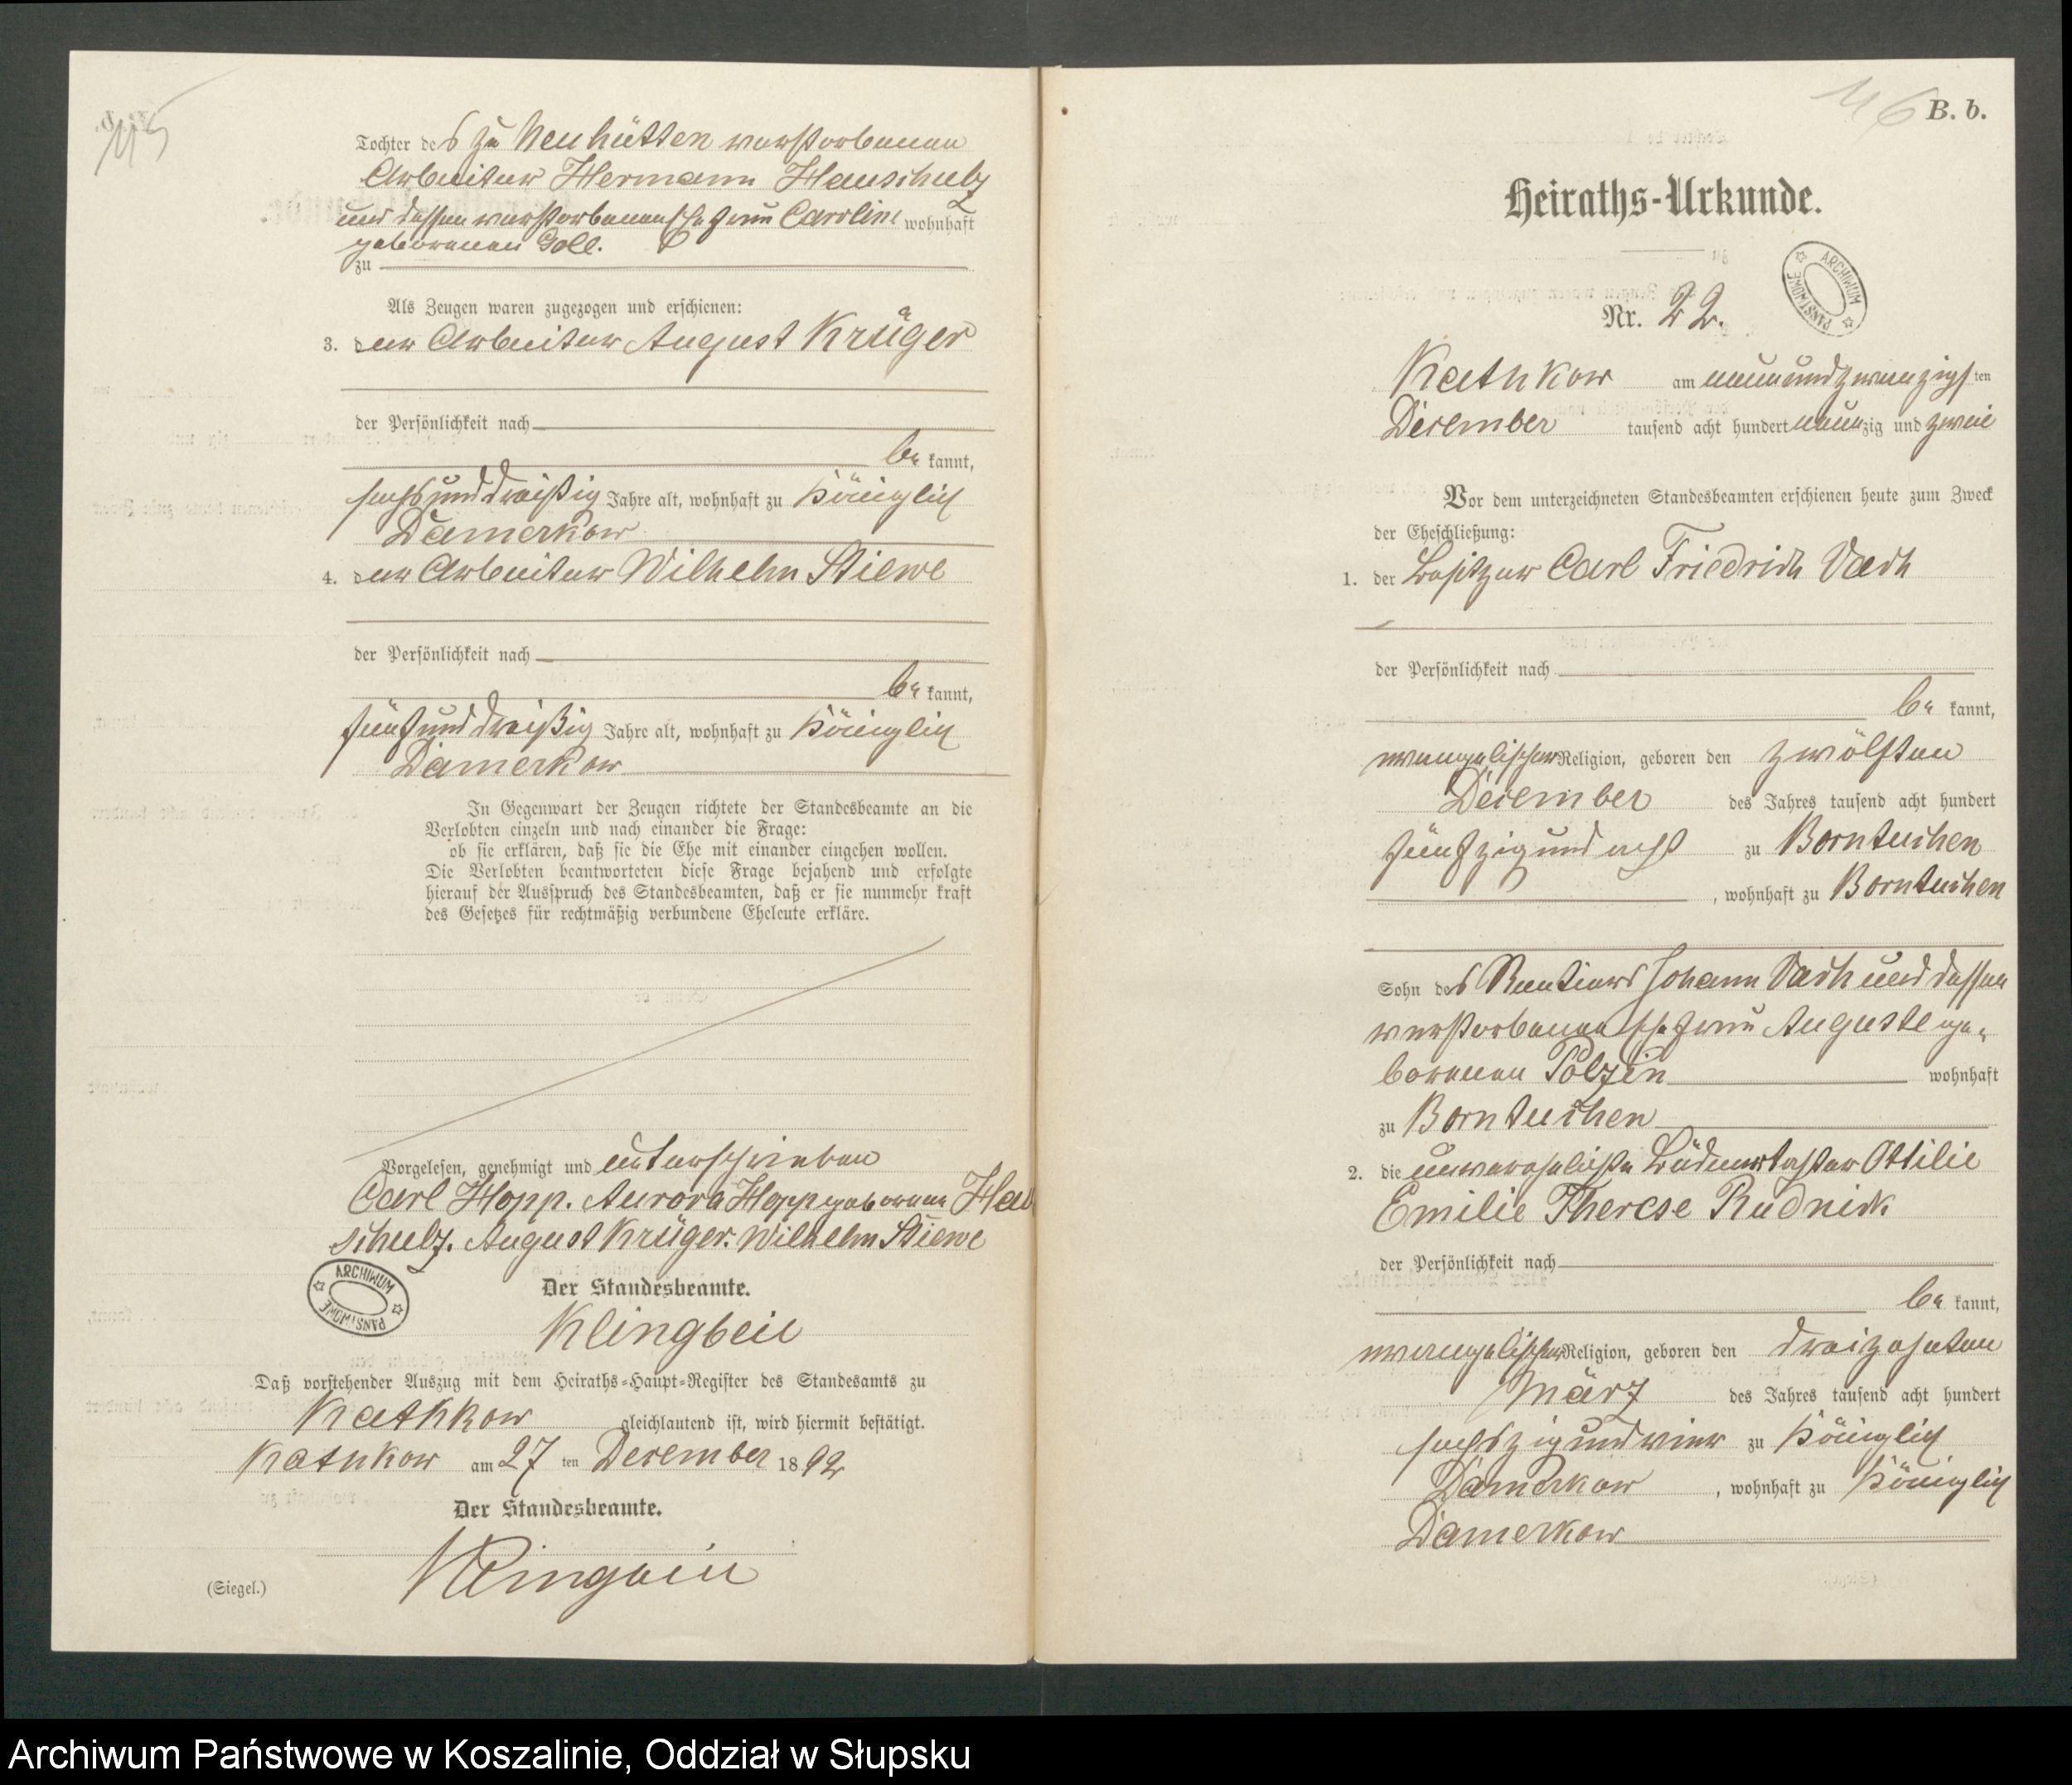 115
Tochter des zu Neuhütten verstorbenen
Arbeiter Hermann Hauschulz
und dessen verstorbenen Ehefrau Caroline wohnhaft
geborenen Goll.
zu
Als Zeugen waren zugezogen und erschienen:
3. der Arbeiter August Krüger
der Persönlichkeit nach
be kannt,
sechsunddreißig Jahre alt, wohnhaft zu Königlich
Damerkow
4. der Arbeiter Wilhelm Stiewe
der Persönlichkeit nach
be kannt,
fünfunddreißig Jahre alt, wohnhaft zu Königlich
Damerkow
In Gegenwart der Zeugen richtete der Standesbeamte an die
Verlobten einzeln und nach einander die Frage:
ob sie erklären, daß sie die Ehe mit einander eingehen wollen.
Die Verlobten beantworteten diese Frage bejahend und erfolgte
hierauf der Ausspruch des Standesbeamten, daß er sie nunmehr kraft
des Gesetzes für rechtmäßig verbundene Eheleute erkläre.
Vorgelesen, genehmigt und unterschrieben
Carl Hopp. Aurora Hopp geborene Hau
schulz. August Krüger. Wilhelm Stiewe
ARCHIWUM PAŃSTWOWE
Der Standesbeamte.
Klingbeil
Daß vorstehender Auszug mit dem Heiraths-Haupt-Register des Standesamts zu
Kathkow gleichlautend ist, wird hiermit bestätigt.
Kathkow am 27 ten December 1892
Der Standesbeamte.
Klingbeil
(Siegel.)
116 B. b.
Heiraths-Urkunde.
ARCHIWUM PAŃSTWOWE
Nr. 22.
Kathkow am neunundzwanzigs ten
December tausend acht hundert neunzig und zwei
Vor dem unterzeichneten Standesbeamten erschienen heute zum Zweck
der Eheschließung:
1. der Besitzer Carl Friedrich Vach
der Persönlichkeit nach
be kannt,
evangelischer Religion, geboren den zwölften
December des Jahres tausend acht hundert
fünfzig und acht zu Borntuchen
, wohnhaft zu Borntuchen
Sohn des Rentiers Johann Vach und dessen
verstorbenen Ehefrau Auguste ge-
borenen Polzin wohnhaft
zu Borntuchen
2. die unverehelichte Büdnertochter Ottilie
Emilie Therese Rudnick
der Persönlichkeit nach
be kannt,
evangelischer Religion, geboren den dreizehnten
März des Jahres tausend acht hundert
sechszig und vier zu Königlich
Damerkow , wohnhaft zu Königlich
Damerkow
Archiwum Państwowe w Koszalinie, Oddział w Słupsku